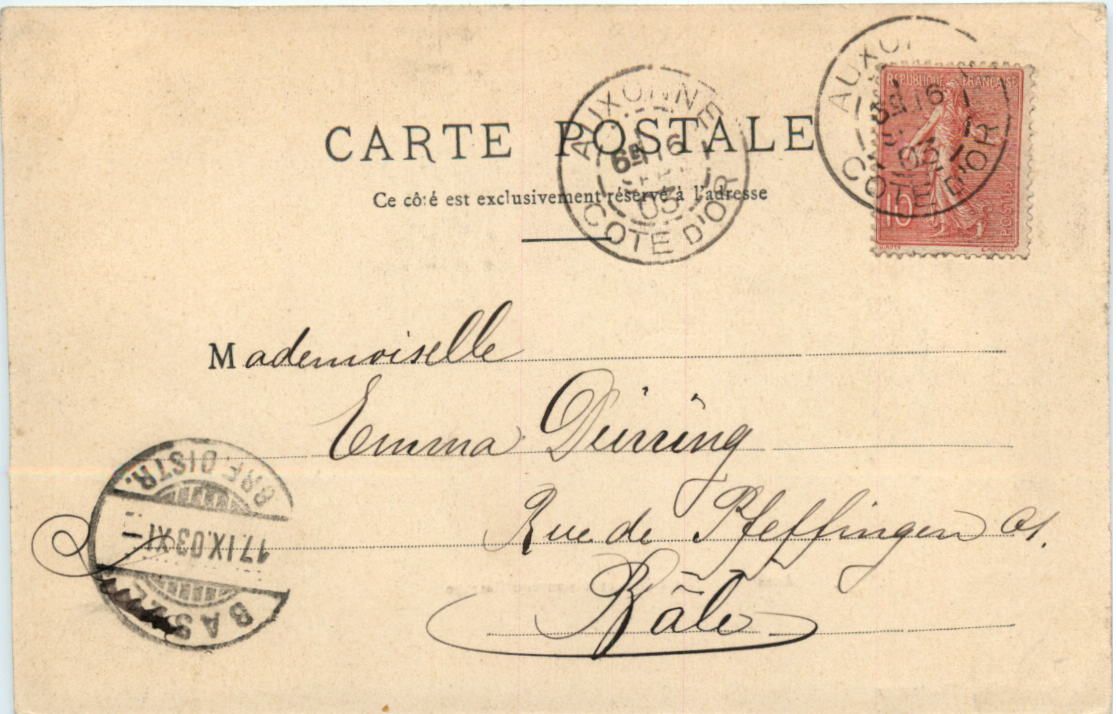 CARTE POSTALE
Ce côté est exclusivement réservé à l'adresse
AUXONNE
6E 16
03
COTE D'OR
AUXO
16
03
COTE D'OR
REPUBLIQUE FRANÇAISE
POSTES
10
Mademoiselle
Emma Dürring
Rue de Pfeffingen 61.
Bâle
BAS
17.IX.03.XI-
BRF. DISTR.